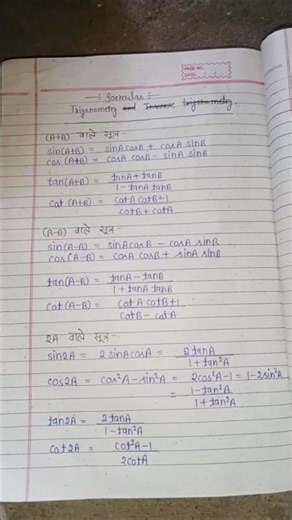 PAGE NO.
DATE:
:- Formulas :-
Trigonometry and Inverse trigonometry.
(A+B) वाले सूत्र -
sin(A+B) = sinA cosB + cosA sinB
cos(A+B) = cosA cosB - sinA sinB
tan(A+B) = tanA + tanB
1 - tanA tanB
cot(A+B) = cotA cotB - 1
cotB + cotA
(A-B) वाले सूत्र -
sin(A-B) = sinA cosB - cosA sinB
cos(A-B) = cosA cosB + sinA sinB
tan(A-B) = tanA - tanB
1 + tanA tanB
cot(A-B) = cotA cotB + 1
cotB - cotA
2A वाले सूत्र -
sin2A = 2 sinA cosA = 2 tanA
1 + tan²A
cos2A = cos²A - sin²A = 2cos²A - 1 = 1 - 2sin²A
= 1 - tan²A
1 + tan²A
tan2A = 2 tanA
1 - tan²A
cot2A = cot²A - 1
2 cotA